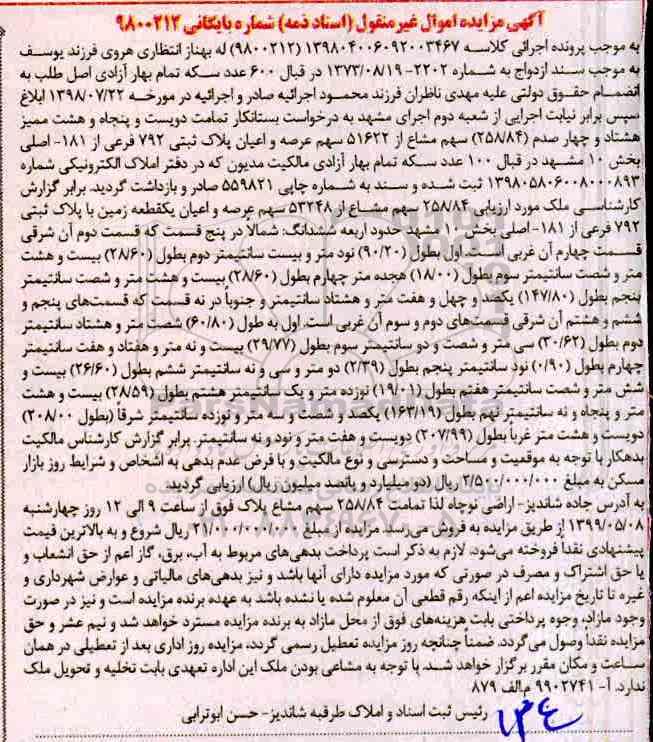 آگهی مزایده اموال غیر منقول (اسناد ذمه) شماره بایگانی ۹۸۰۰۲۱۲
به موجب پرونده اجرائی کلاسه ۱۳۹۸۰۴۰۰۶۰۹۲۰۰۳۴۶۷ (۹۸۰۰۲۱۲) له بهناز انتظاری هروی فرزند یوسف
به موجب سند ازدواج به شماره ۲۲۰۲-۱۳۷۳/۰۸/۱۹ در قبال ۶۰۰ عدد سکه تمام بهار آزادی اصل طلب به
انضمام حقوق دولتی علیه مهدی ناظران فرزند محمود اجرائیه صادر و اجرائیه در مورخه ۱۳۹۸/۰۷/۲۲ ابلاغ
سپس برابر نیابت اجرایی از شعبه دوم اجرای مشهد به درخواست بستانکار تمامت دویست و پنجاه و هشت ممیز
هشتاد و چهار صدم (۲۵۸/۸۴) سهم مشاع از ۵۱۶۲۲ سهم عرصه و اعیان پلاک ثبتی ۷۹۲ فرعی از ۱۸۱- اصلی
بخش ۱۰ مشهد در قبال ۱۰۰ عدد سکه تمام بهار آزادی مالکیت مدیون که در دفتر املاک الکترونیکی شماره
۱۳۹۸۰۵۸۰۶۰۰۸۰۰۰۸۹۳ ثبت شده و سند به شماره چاپی ۵۵۹۸۲۱ صادر و بازداشت گردید. برابر گزارش
کارشناسی ملک مورد ارزیابی ۲۵۸/۸۴ سهم مشاع از ۵۳۲۴۸ سهم عرصه و اعیان یکقطعه زمین با پلاک ثبتی
۷۹۲ فرعی از ۱۸۱- اصلی بخش ۱۰ مشهد حدود اربعه ششدانگ: شمالاً در پنج قسمت که قسمت دوم آن شرقی
قسمت چهارم آن غربی است. اول بطول (۹۰/۲۰) نود متر و بیست سانتیمتر دوم بطول (۲۸/۶۰) بیست و هشت
متر و شصت سانتیمتر سوم بطول (۱۸/۰۰) هجده متر چهارم بطول (۲۸/۶۰) بیست و هشت متر و شصت سانتیمتر
پنجم بطول (۱۴۷/۸۰) یکصد و چهل و هفت متر و هشتاد سانتیمتر و جنوباً در نه قسمت که قسمت‌های پنجم و
ششم و هشتم آن شرقی قسمت‌های دوم و سوم آن غربی است. اول به طول (۶۰/۸۰) شصت متر و هشتاد سانتیمتر
دوم بطول (۳۰/۶۲) سی متر و شصت و دو سانتیمتر سوم بطول (۲۹/۷۷) بیست و نه متر و هفتاد و هفت سانتیمتر
چهارم بطول (۰/۹۰) نود سانتیمتر پنجم بطول (۲/۳۹) دو متر و سی و نه سانتیمتر ششم بطول (۲۶/۶۰) بیست و
شش متر و شصت سانتیمتر هفتم بطول (۱۹/۰۱) نوزده متر و یک سانتیمتر هشتم بطول (۲۸/۵۹) بیست و هشت
متر و پنجاه و نه سانتیمتر نهم بطول (۱۶۳/۱۹) یکصد و شصت و سه متر و نوزده سانتیمتر شرقاً (بطول ۲۰۸/۰۰)
دویست و هشت متر غرباً بطول (۲۰۷/۹۹) دویست و هفت متر و نود و نه سانتیمتر. برابر گزارش کارشناس مالکیت
بدهکار با توجه به موقعیت و مساحت و دسترسی و نوع مالکیت و با فرض عدم بدهی به اشخاص و شرایط روز بازار
مسکن به مبلغ ۲/۵۰۰/۰۰۰/۰۰۰ ریال (دو میلیارد و پانصد میلیون ریال) ارزیابی گردید.
به آدرس جاده شاندیز- اراضی نوچاه لذا تمامت ۲۵۸/۸۴ سهم مشاع پلاک فوق از ساعت ۹ الی ۱۲ روز چهارشنبه
۱۳۹۹/۰۵/۰۸ از طریق مزایده به فروش می‌رسد. مزایده از مبلغ ریال شروع و به بالاترین قیمت
پیشنهادی نقداً فروخته می‌شود، لازم به ذکر است پرداخت بدهی‌های مربوط به آب، برق، گاز اعم از حق انشعاب و
یا حق اشتراک و مصرف در صورتی که مورد مزایده دارای آنها باشد و نیز بدهی‌های مالیاتی و عوارض شهرداری و
غیره تا تاریخ مزایده اعم از اینکه رقم قطعی آن معلوم شده یا نشده باشد به عهده برنده مزایده است و نیز در صورت
وجود مازاد، وجوه پرداختی بابت هزینه‌های فوق از محل مازاد به برنده مزایده مسترد خواهد شد و نیم عشر و حق
مزایده نقداً وصول می‌گردد. ضمناً چنانچه روز مزایده تعطیل رسمی گردد، مزایده روز اداری بعد از تعطیلی در همان
ساعت و مکان مقرر برگزار خواهد شد. با توجه به مشاعی بودن ملک این اداره تعهدی بابت تخلیه و تحویل ملک
ندارد. آ- ۹۹۰۲۷۴۱ م.الف ۸۷۹
رئیس ثبت اسناد و املاک طرقبه شاندیز- حسن ابوترابی